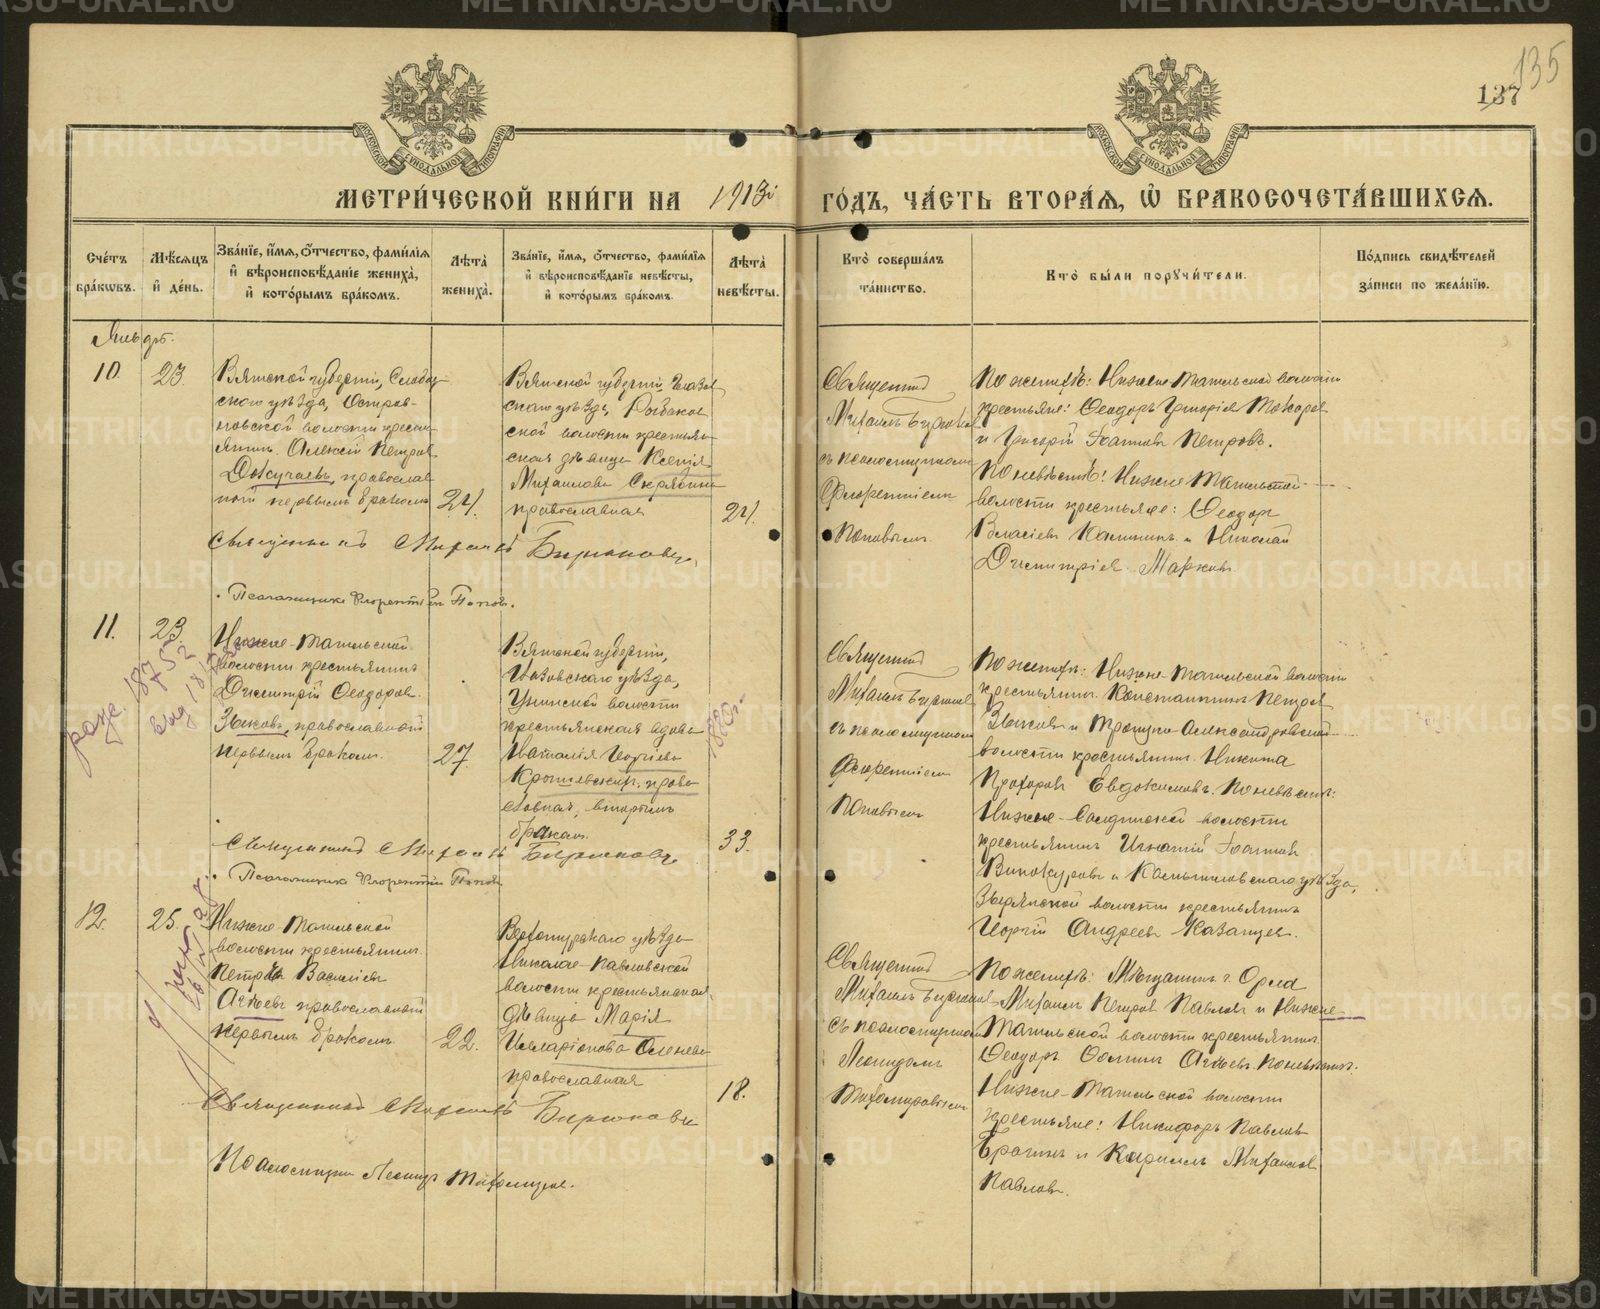 135
137
МОСКОВСКОЙ СѴНОДАЛЬНОЙ ТИПОГРАФІИ
МОСКОВСКОЙ СѴНОДАЛЬНОЙ ТИПОГРАФІИ
МЕТРИ́ЧЕСКОЙ КНИ́ГИ НА 1913й ГО́ДЪ, ЧА́СТЬ ВТОРА́Я, Ѡ҆ БРАКОСОЧЕТА́ВШИХСЯ.
Сче́тъ бра́кѡвъ.
Мѣ́сяцъ и҆ де́нь.
Зва́нїе, и҆́мя, ѻ҆́тчество, фами́лїя и҆ вѣроисповѣ́данїе жениха̀, и҆ кото́рымъ бра́комъ.
Лѣ́та жениха̀.
Зва́нїе, и҆́мя, ѻ҆́тчество, фами́лїя и҆ вѣроисповѣ́данїе невѣ́сты, и҆ кото́рымъ бра́комъ.
Лѣ́та невѣ́сты.
Кто̀ соверша́лъ та́инство.
Кто̀ бы́ли порꙋчи́тели.
По́дпись свидѣ́телей за́писи по жела́нїю.
Январь.
10.
23.
Вятской губерніи, Слобод-
ского уѣзда, Остров-
новской волости кресть-
янинъ Алексѣй Петров
Докучаевъ, православ
ный первымъ бракомъ
24.
Вятской губерніи, Глазов
скаго уѣзда,
ской волости крестьян-
ская дѣвица Ксенія
Михаилова Скрябина
православная
24.
Священник
Михаилъ Бирюков
съ псаломщикомъ
Флорентіемъ
Поповымъ.
По женихѣ: Нижне-Тагильской волости
крестьяне: Ѳеодоръ Григоріев Токарев
и Григорій Іоаннов Петровъ.
По невѣстѣ: Нижне Тагильской
волости крестьяне: Ѳеодор
Власіев Калинин и Николай
Димитріев Марков
Священникъ Михаилъ Бирюковъ.
Псаломщикъ Флорентій Попов.
11.
23.
Нижне-Тагильской
волости крестьянинъ
Димитрій Ѳеодоров
Зыковъ, православный
первымъ бракомъ.
27.
Вятской губерніи,
Глазовскаго уѣзда,
Унинской волости
крестьянская вдова
Наталія Георгіева
право
славная, вторымъ
бракомъ.
33.
1880г.
Священник
Михаилъ Бирюков
съ псаломщиком
Флорентіемъ
Поповымъ
По женихѣ: Нижне-Тагильской волости
крестьянин Константин Петров
Зыков и Троицко-Александровской
волости крестьянин Никита
Прохоров Евдокимовъ. По невѣстѣ:
Нижне-Салдинской волости
крестьянинъ Игнатій Іоаннов
Винокуровъ и Камышловскаго уѣзда,
Зырянской волости крестьянинъ
Георгій Андреев Казанцев.
Священник Михаилъ Бирюковъ
Псаломщикъ Флорентій Попов
12.
25.
Нижне-Тагильской
волости крестьянин
Петръ Василіев
Агѣевъ православный
первымъ бракомъ
22.
Верхотурскаго уѣзда
Николае-Павловской
волости крестьянская
дѣвица Марія
Илларіонова Оленева
православная
18.
Священник
Михаилъ Бирюков
съ псаломщиком
Леонидомъ
Тихомировымъ
По женихѣ: Мѣщанинъ г. Орла
Михаилъ Петров Павлов и Нижне-
Тагильской волости крестьянин
Ѳеодоръ Ѳомин Агѣевъ. По невѣстѣ:
Нижне-Тагильской волости
крестьяне: Никифоръ Павлов
Брагинъ и Кириллъ Михаилов
Павлов.
Священник Михаилъ Бирюковъ
Псаломщик Леонид Тихомиров.